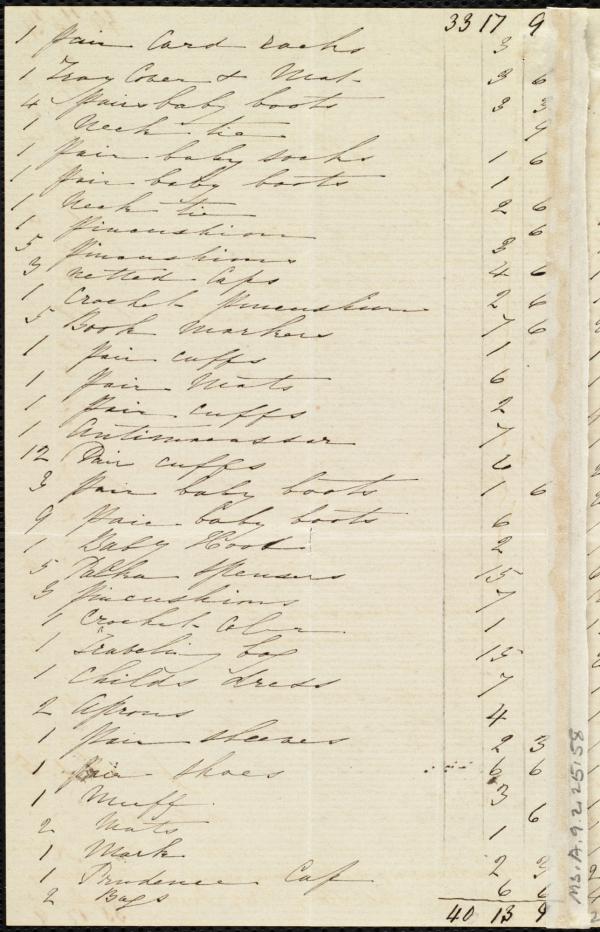 33 17 9
1 pair Card racks 3
1 Tray Cover & Mat 3 6
4 pairs baby boots 3 3
1 Neck tie 9
1 pair baby socks 1 6
1 pair baby boots 1
1 Neck tie 2 6
1 pincushion 6
5 pincushions 3
3 netted Caps 4 6
1 Crochet pincushion 2 6
5 Book markers 7 6
1 pair cuffs 1
1 pair Mats 6
1 pair cuffs 2
1 Antimacassar 7
12 Pair cuffs 6
3 pair baby boots 1 6
9 pair baby boots 6
1 Baby Hood 2
5 Polka Spensers 15
3 pincushions 7
1 Crochet Color 1
1 Traveling bag 15
1 Childs dress 7
2 aprons 4
1 pair sleeves 2 3
1 pair shoes 6 6
1 Muff 3
2 Mats 6
1 Mark 1
1 Prudence Cap 2 3
2 Bags 6 6
40 13 9
MS.A.9.2.25.158